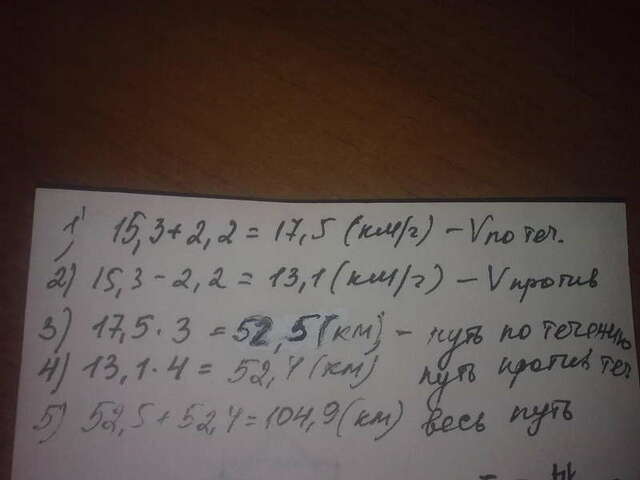 1) 15,3 + 2,2 = 17,5 (км/г) – V по теч.
2) 15,3 – 2,2 = 13,1 (км/г) – V против
3) 17,5 · 3 = 52,5 (км) – путь по течению
4) 13,1 · 4 = 52,4 (км) путь против теч
5) 52,5 + 52,4 = 104,9 (км) весь путь